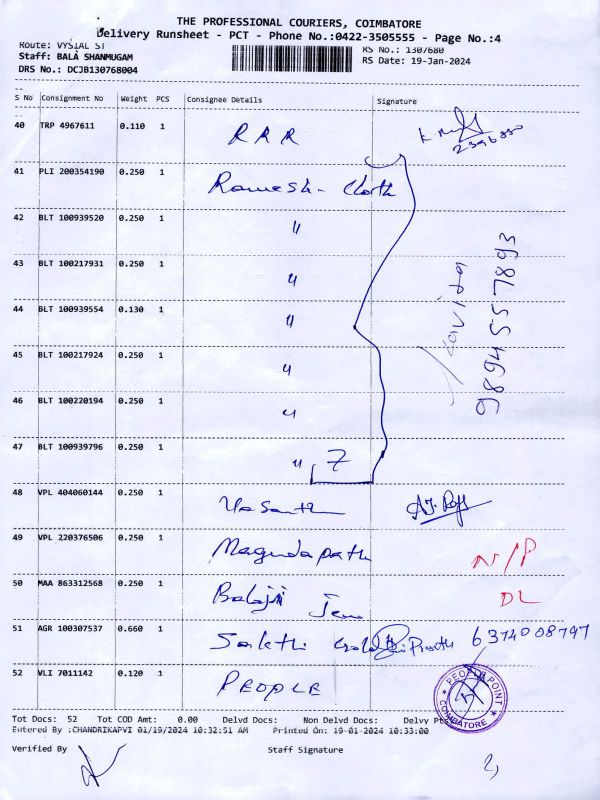 THE PROFESSIONAL COURIERS, COIMBATORE
Delivery Runsheet - PCT - Phone No.:0422-3505555 - Page No.:4
Route: VYSIAL ST RS No.: 1307680
Staff: BALA SHANMUGAM RS Date: 19-Jan-2024
DRS No.: DCJB130768004
S No Consignment No Weight PCS Consignee Details Signature
40 TRP 4967611 0.110 1 RRR
41 PLI 200354190 0.250 1 Ramesh- Cloth
42 BLT 100939520 0.250 1 "
43 BLT 100217931 0.250 1 "
44 BLT 100939554 0.130 1 "
45 BLT 100217924 0.250 1 "
46 BLT 100220194 0.250 1 "
47 BLT 100939796 0.250 1 " 7
Kavitha
9894557893
48 VPL 404060144 0.250 1 Vasanth
49 VPL 220376506 0.250 1 N/P
50 MAA 863312568 0.250 1 Balaji DL
51 AGR 100307537 0.660 1 Sakthi 6374008797
52 VLI 7011142 0.120 1 PEOPLE
PEOPLE POINT
COIMBATORE
Tot Docs: 52 Tot COD Amt: 0.00 Delvd Docs: Non Delvd Docs: Delvy Pt
Entered By :CHANDRIKAPVI 01/19/2024 10:32:51 AM Printed On: 19-01-2024 10:33:00
Verified By Staff Signature